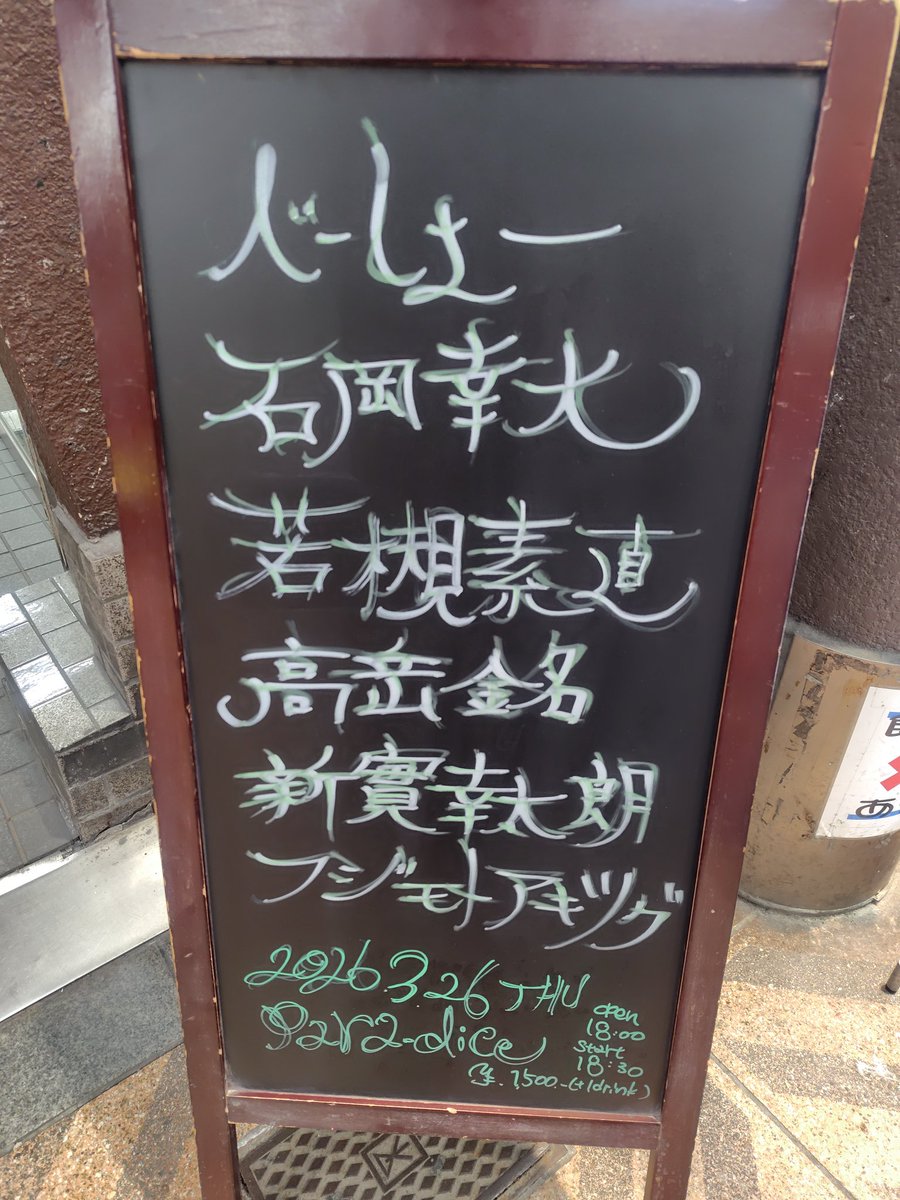 べーしょー
石岡幸大
若槻素直
高岳銘
新實幸太朗
フジモトアキツグ
2026 3.26 THU
open
18:00
Para-dice
start
18:30
¥.1500-(+1drink)